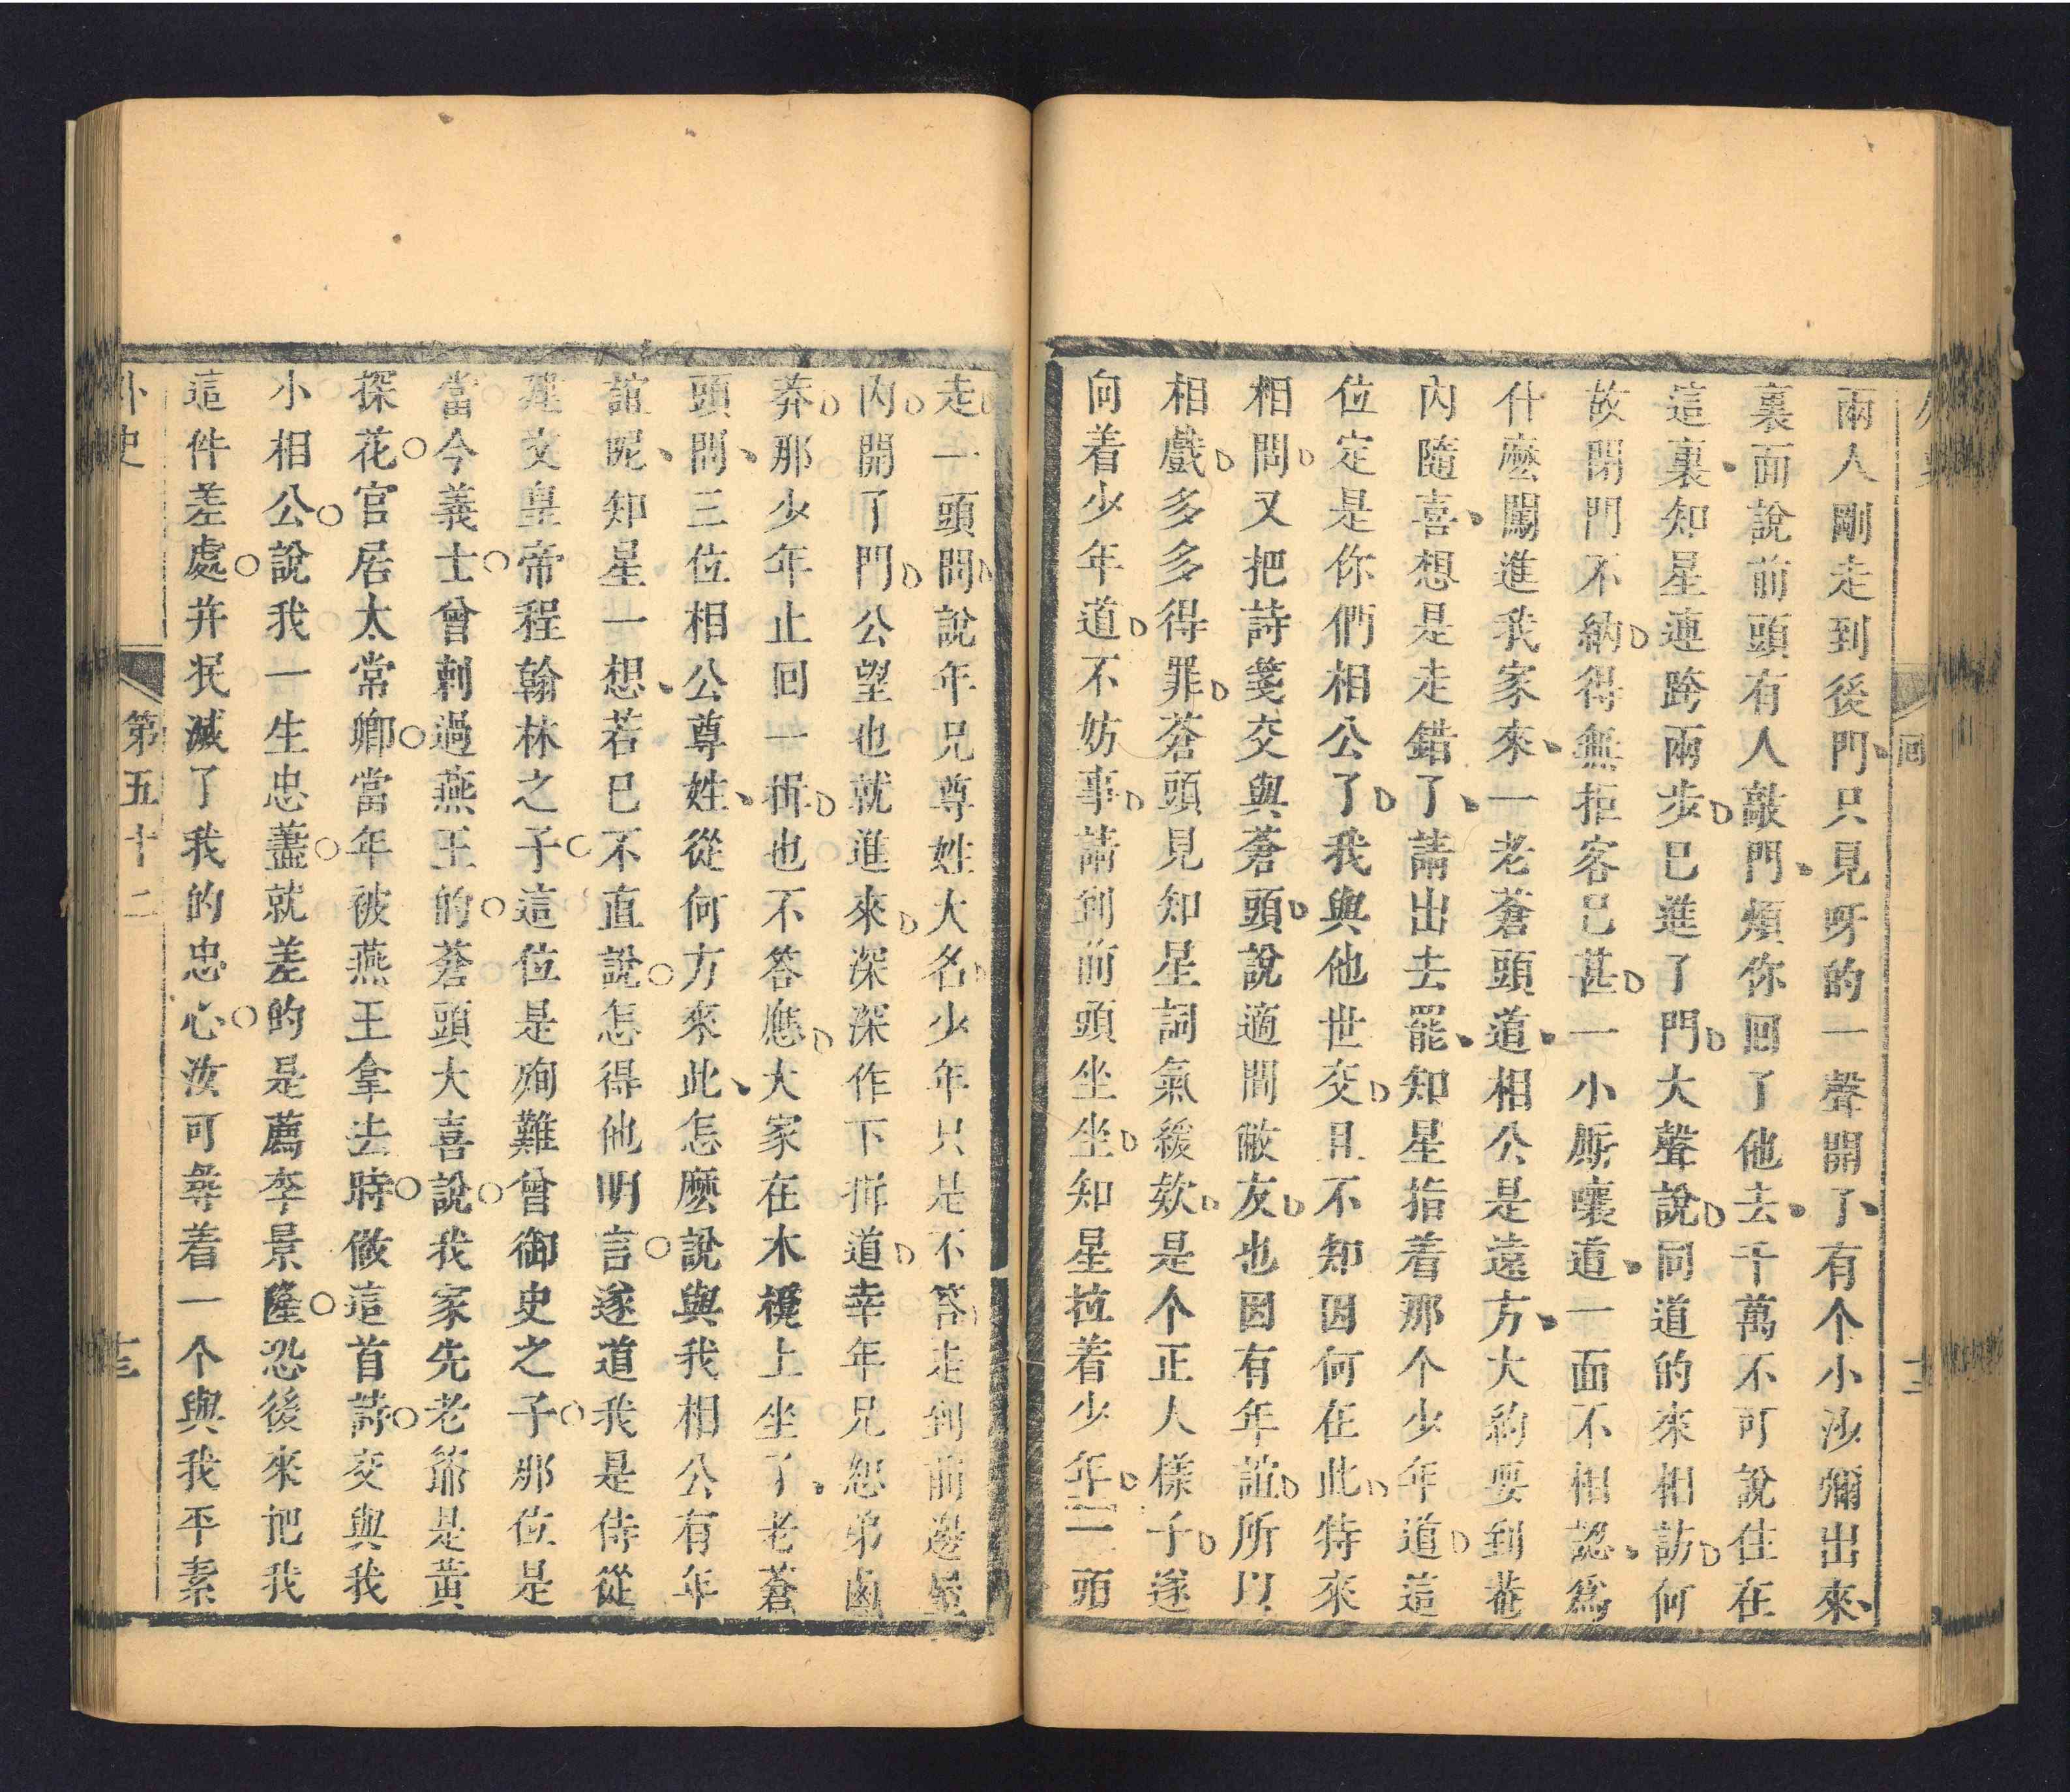 兩人剛走到後門只見呀的一聲開了有个小沙彌出來
裏面說前頭有人敲門煩你回了他去千萬不可說住在
這裏知星連跨兩步已進了門大聲說同道的來相訪何
故閉門不納得無拒客已甚一小厮嚷道一面不相認爲
什麽闖進我家來一老蒼頭道相公是遠方大約要到菴
內隨喜想是走錯了請出去罷知星指着那个少年道這
位定是你們相公了我與他世交且不知因何在此特來
相問又把詩箋交與蒼頭說適間敝友也因有年誼所以
相戲多多得罪蒼頭見知星詞氣緩欸是个正人樣子遂
向着少年道不妨事請到前頭坐坐知星拉着少年一頭
走一頭問說年兄尊姓大名少年只是不答走到前邊屋
內開了門公望也就進來深深作下揖道幸年兄恕弟鹵
莽那少年止回一揖也不答應大家在木櫈上坐了老蒼
頭問三位相公尊姓從何方來此怎麽說與我相公有年
誼呢知星一想若已不直說怎得他明言遂道我是侍從
建文皇帝程翰林之子這位是殉難曾御史之子那位是
當今義士曾刺過燕王的蒼頭大喜說我家先老爺是黃
探花官居太常卿當年被燕王拿去時做這首詩交與我
小相公說我一生忠藎就差的是薦李景隆恐後來把我
這件差處并泯滅了我的忠心汝可尋着一个與我平素
外史 第五十二 十三